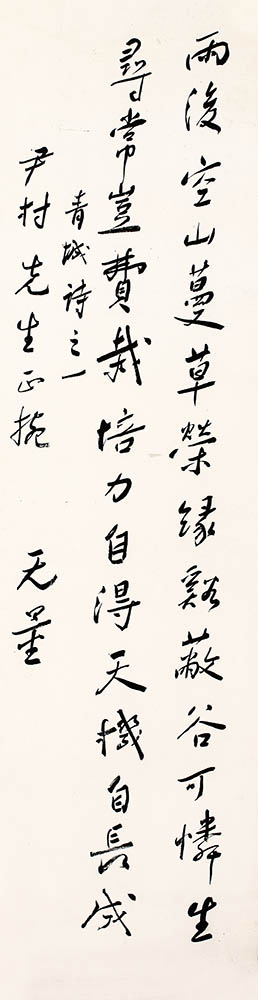 雨後空山蔓草榮緣谿蔽谷可憐生
尋常豈費栽培力自得天機自長成
青城詩之一
尹村先生正捥
无量